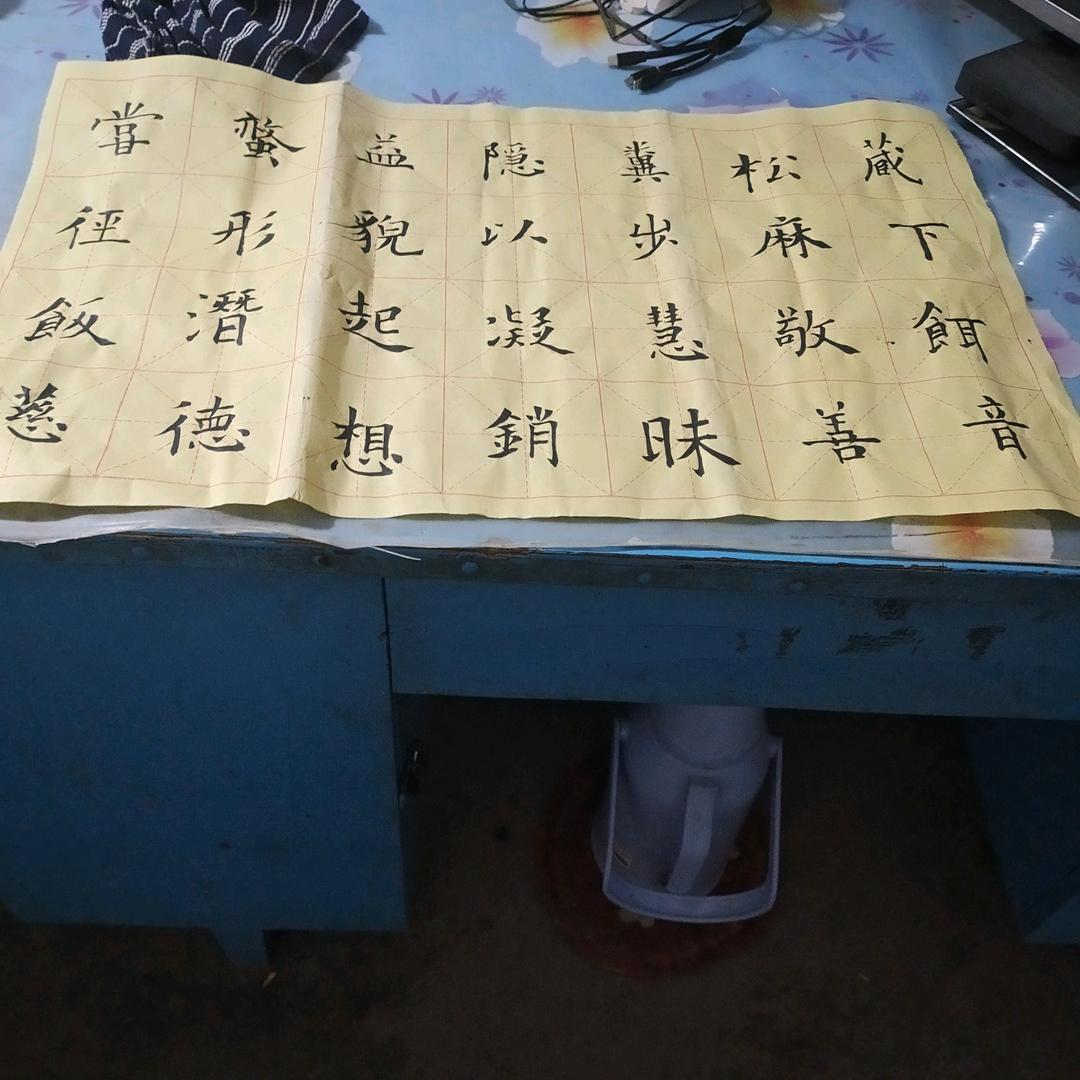 蔵下餌音
松麻敬善
糞步慧昧
隐以凝銷
益貌起想
形潛德
甞徑飯慈